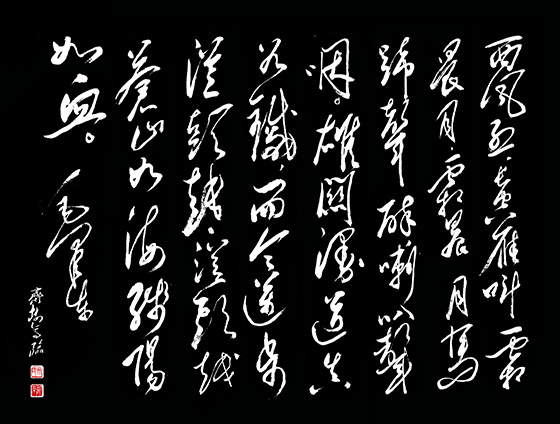 西風烈、長空雁叫霜
晨月、霜晨月馬
蹄聲碎喇叭聲
咽。雄關漫道真
如鐵、而今邁步
從頭越、從頭越
蒼山如海殘陽
如血。毛澤東